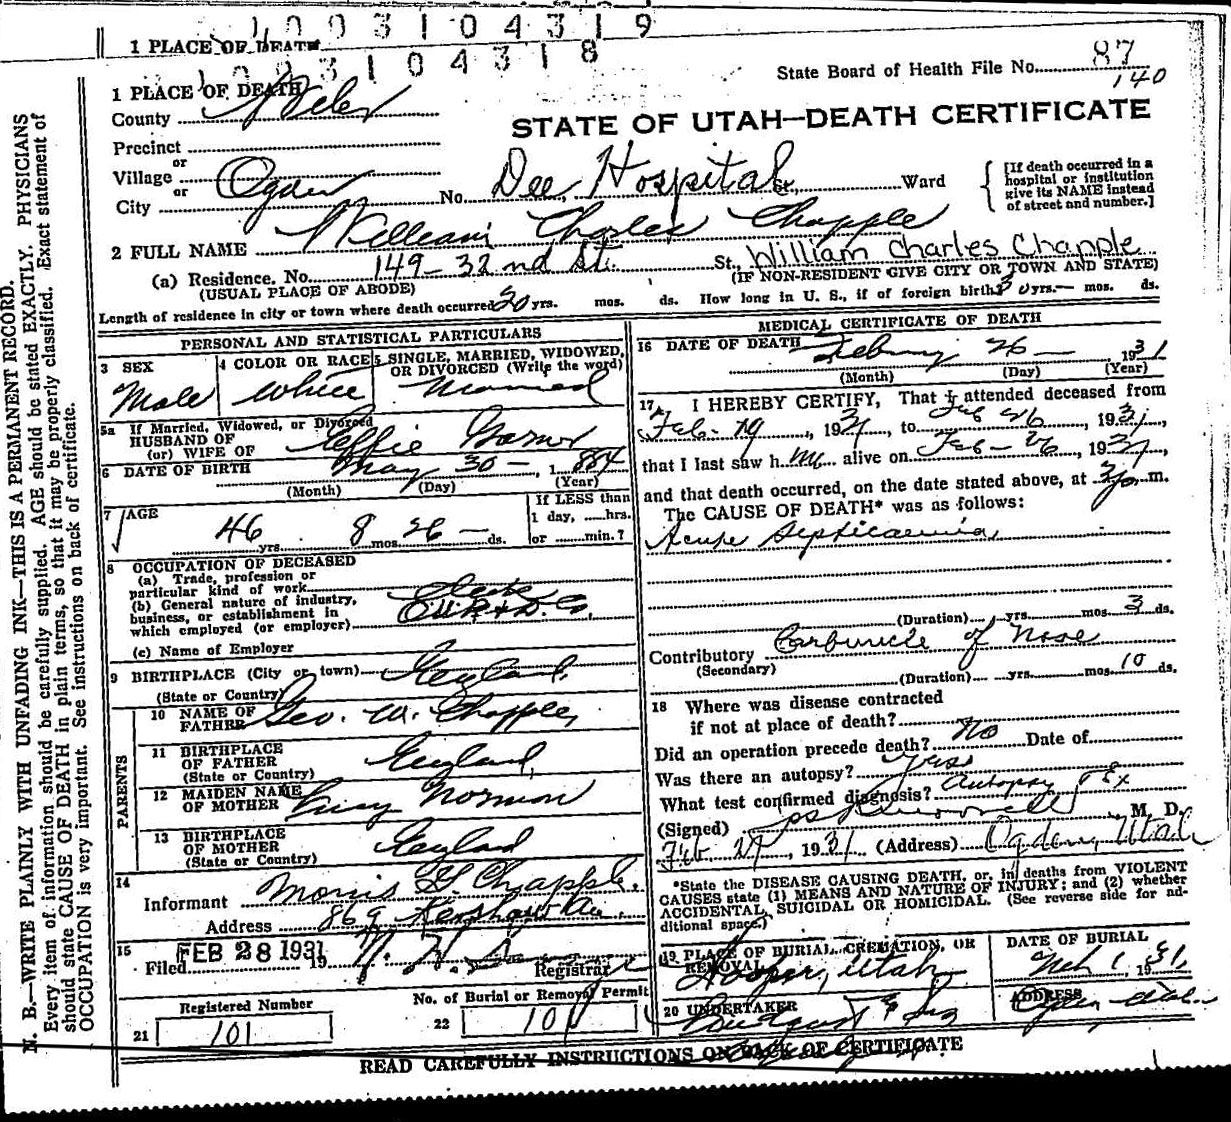 1003104319
1 PLACE OF DEATH
1003104318
State Board of Health File No. 87
140
1 PLACE OF DEATH
County Weber
STATE OF UTAH—DEATH CERTIFICATE
Precinct
or
Village
or
City Ogden No. Dee Hospital St., Ward
[If death occurred in a
hospital or institution
give its NAME instead
of street and number.]
2 FULL NAME William Charles Chapple
William Charles Chapple
(a) Residence. No. 149-32nd St. St.,
(USUAL PLACE OF ABODE) (IF NON-RESIDENT GIVE CITY OR TOWN AND STATE)
Length of residence in city or town where death occurred 20 yrs. mos. ds. How long in U. S., if of foreign birth? 30 yrs. — mos. ds.
PERSONAL AND STATISTICAL PARTICULARS
3 SEX Male
4 COLOR OR RACE White
5 SINGLE, MARRIED, WIDOWED,
OR DIVORCED (Write the word)
Married
5a If Married, Widowed, or Divorced
HUSBAND OF
(or) WIFE OF Effie
6 DATE OF BIRTH May 30 — , 1884
(Month) (Day) (Year)
7 AGE
46 yrs. 8 mos. 26 — ds.
If LESS than
1 day, ......hrs.
or ......min.?
8 OCCUPATION OF DECEASED
(a) Trade, profession or
particular kind of work
(b) General nature of industry,
business, or establishment in
which employed (or employer)
(c) Name of Employer
9 BIRTHPLACE (City or town) England
(State or Country)
PARENTS
10 NAME OF
FATHER Geo. W. Chapple
11 BIRTHPLACE
OF FATHER England
(State or Country)
12 MAIDEN NAME
OF MOTHER Norman
13 BIRTHPLACE
OF MOTHER England
(State or Country)
14
Informant Morris G. Chapple
Address 869 Kershaw Ave.
15
Filed FEB 28 1931 19 Registrar
Registered Number
21 101
No. of Burial or Removal Permit
22 101
MEDICAL CERTIFICATE OF DEATH
16 DATE OF DEATH February 26 — 1931
(Month) (Day) (Year)
17 I HEREBY CERTIFY, That I attended deceased from
Feb. 19, 1931, to Feb 26, 1931,
that I last saw him alive on Feb - 26, 1931,
and that death occurred, on the date stated above, at m.
The CAUSE OF DEATH* was as follows:
Acute Septicaemia
(Duration) yrs. mos. 3 ds.
Contributory Carbuncle of Nose
(Secondary)
(Duration) yrs. mos. 10 ds.
18 Where was disease contracted
if not at place of death?
Did an operation precede death? No Date of
Was there an autopsy? Yes
What test confirmed diagnosis? Autopsy
(Signed) M. D.
Feb 27, 1931 (Address) Ogden, Utah
*State the DISEASE CAUSING DEATH, or, in deaths from VIOLENT
CAUSES state (1) MEANS AND NATURE OF INJURY; and (2) whether
ACCIDENTAL, SUICIDAL OR HOMICIDAL. (See reverse side for ad-
ditional space.)
19 PLACE OF BURIAL, CREMATION, OR
REMOVAL Hooper, Utah
DATE OF BURIAL
Mch 1, 1931
20 UNDERTAKER
ADDRESS
Ogden Utah
READ CAREFULLY INSTRUCTIONS ON BACK OF CERTIFICATE
N. B.—WRITE PLAINLY WITH UNFADING INK—THIS IS A PERMANENT RECORD.
Every item of information should be carefully supplied. AGE should be stated EXACTLY. PHYSICIANS
should state CAUSE OF DEATH in plain terms, so that it may be properly classified. Exact statement of
OCCUPATION is very important. See instructions on back of certificate.